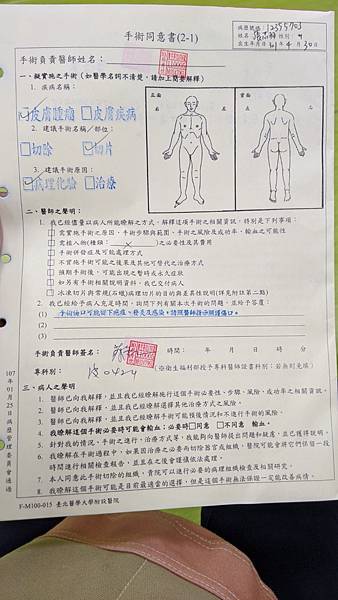 手術同意書(2-1)
病歷號碼：12355703
姓名：
性別：
出生年月日 61年4月30日
手術負責醫師姓名：
一、擬實施之手術（如醫學名詞不清楚，請加上簡要解釋）
1. 疾病名稱：
☑皮膚腫瘤 □皮膚疾病
2. 建議手術名稱/部位：
□切除 ☑切片
3. 建議手術原因：
☑病理化驗 □治療
正面 背面
右 左 左 右
二、醫師之聲明：
1. 我已經儘量以病人所能瞭解之方式，解釋這項手術之相關資訊，特別是下列事項：
需實施手術之原因、手術步驟與範圍、手術之風險及成功率、輸血之可能性
需植入物(種類： )之必要性及其費用
手術併發症及可能處理方式
不實施手術可能之後果及其他可替代之治療方式
預期手術後，可能出現之暫時或永久症狀
如另有手術相關說明資料，我已交付病人
冰凍切片與常規(石蠟)病理切片的目的與差異性說明(詳見附註第二點)
2. 我已經給予病人充足時間，詢問下列有關本次手術的問題，並給予答覆：
(1) 手術傷口可能留下疤痕、發炎及感染，請照醫師指示照護傷口。
(2)
(3)
手術負責醫師簽名： 時間： 年 月 日 時 分
專科別： (※衛生福利部授予專科醫師證書科別；若無則免填)
三、病人之聲明
1. 醫師已向我解釋，並且我已經瞭解施行這個手術的必要性、步驟、風險、成功率之相關資訊。
2. 醫師已向我解釋，並且我已經瞭解選擇其他治療方式之風險。
3. 醫師已向我解釋，並且我已經瞭解手術可能預後情況和不進行手術的風險。
4. 我瞭解這個手術必要時可能會輸血；必要時□同意 □不同意 輸血。
5. 針對我的情況、手術之進行、治療方式等，我能夠向醫師提出問題和疑慮，並已獲得說明。
6. 我瞭解在手術過程中，如果因治療之必要而切除器官或組織，醫院可能會將它們保留一段
時間進行相關檢查報告，並且在之後會謹慎依法處理。
7. 本人同意此手術切除的組織，貴院可以進行必要的病理組織檢查及相關研究。
8. 我瞭解這個手術可能是目前最適當的選擇，但是這個手術無法保證一定能改善病情。
107年01月25日病歷管理委員會通過
F-M100-015 臺北醫學大學附設醫院